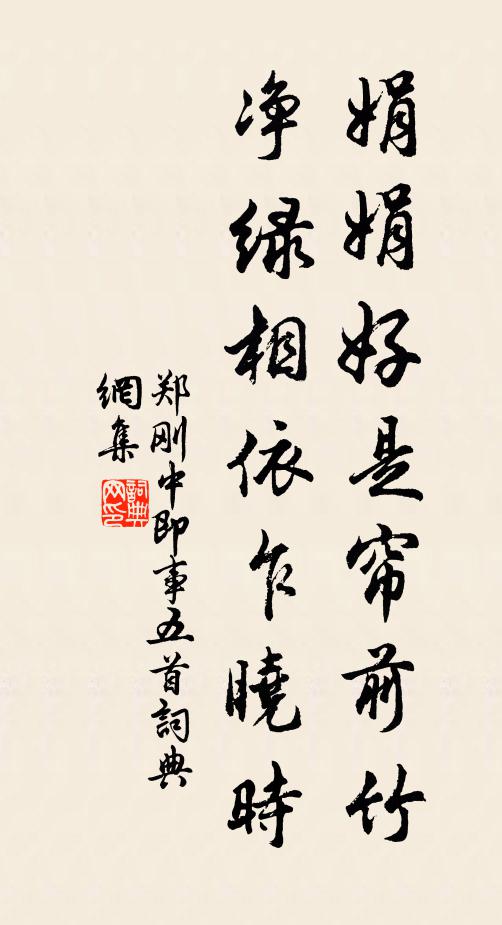 娟娟好是帘前竹
净绿相依乍曉時
郑刚中即事五首詞典
網集
詞典
网印